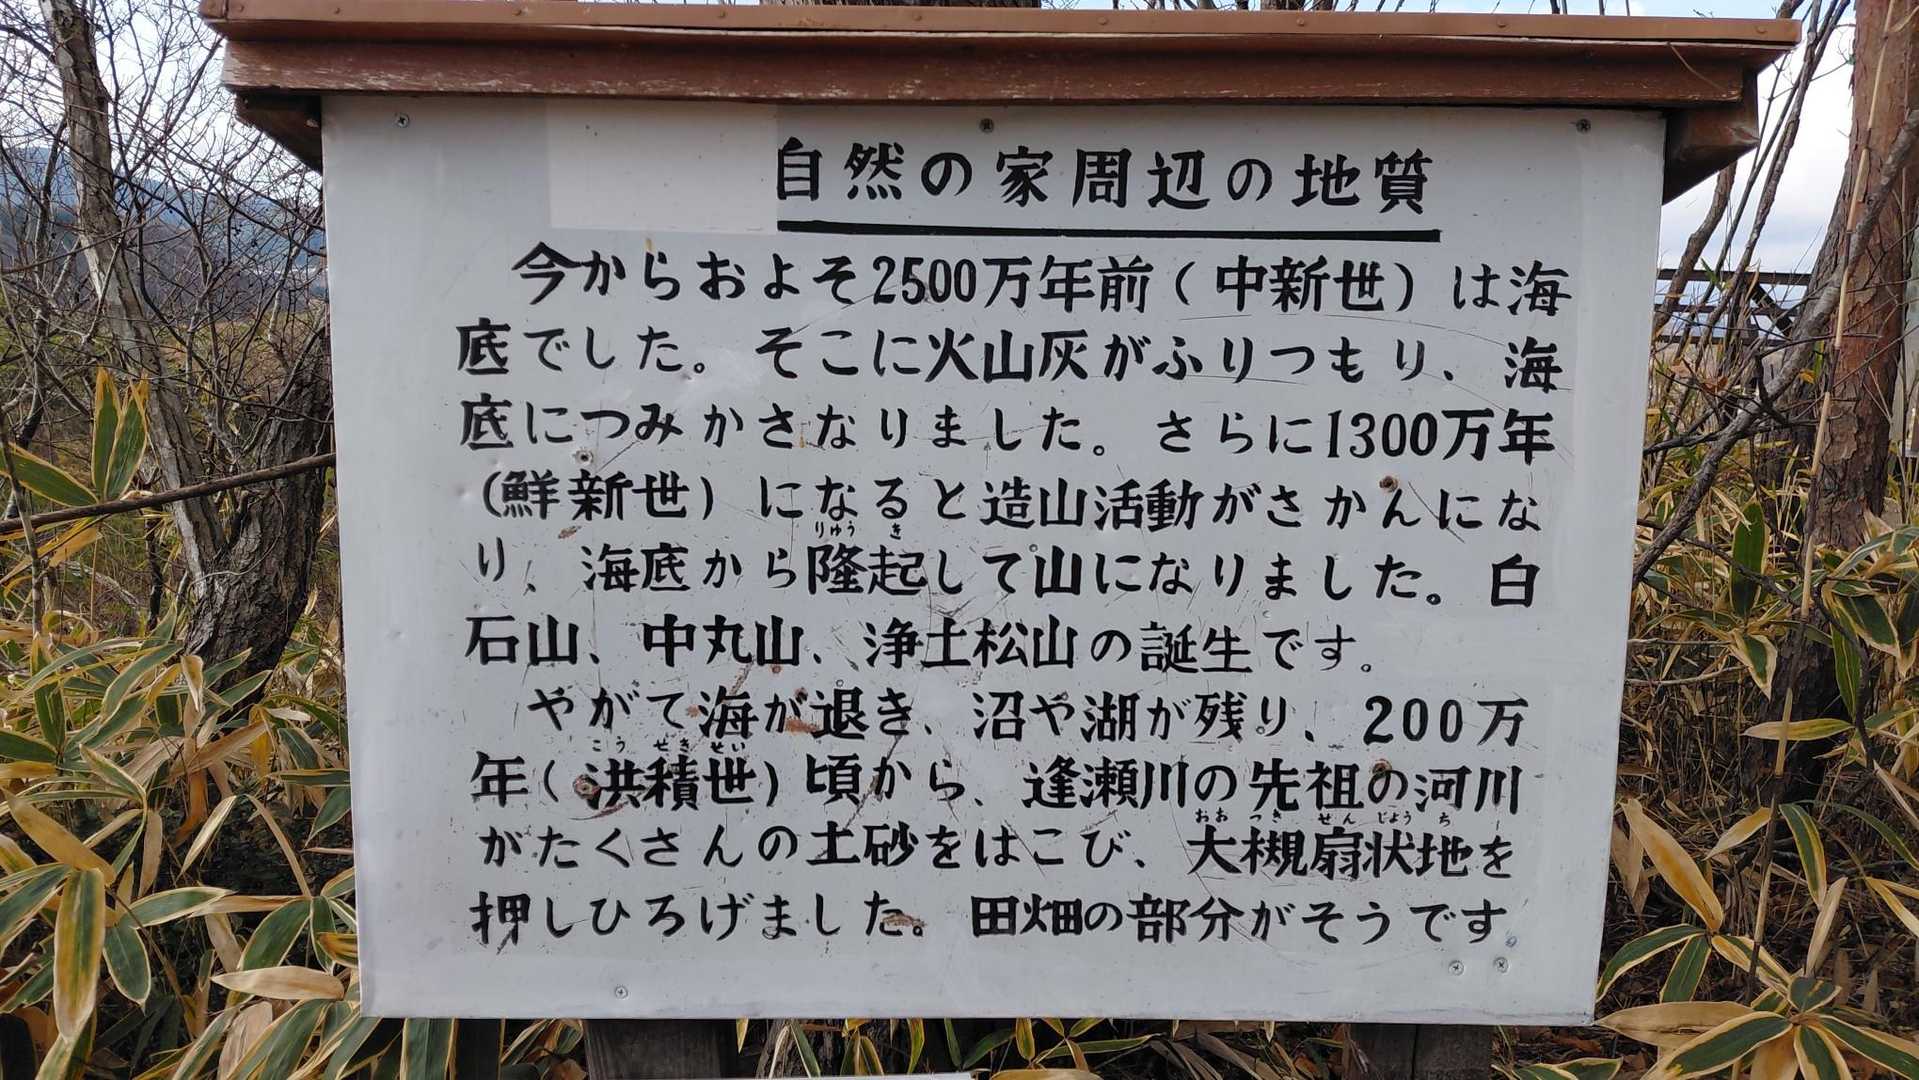 自然の家周辺の地質
今からおよそ2500万年前（中新世）は海
底でした。そこに火山灰がふりつもり、海
底につみかさなりました。さらに1300万年
（鮮新世）になると造山活動がさかんにな
りゅうき
り、海底から隆起して山になりました。白
石山、中丸山、浄土松山の誕生です。
やがて海が退き、沼や湖が残り、200万
こうせきせい
年（洪積世）頃から、逢瀬川の先祖の河川
おおつきせんじょうち
がたくさんの土砂をはこび、大槻扇状地を
押しひろげました。田畑の部分がそうです。